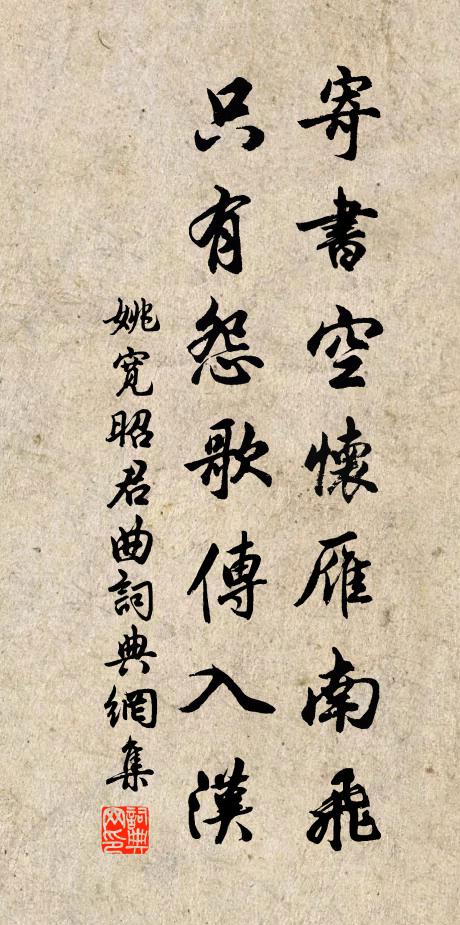 寄書空懷雁南飛
只有怨歌傳入漢
姚寬昭君曲詞典網集
詞典网印